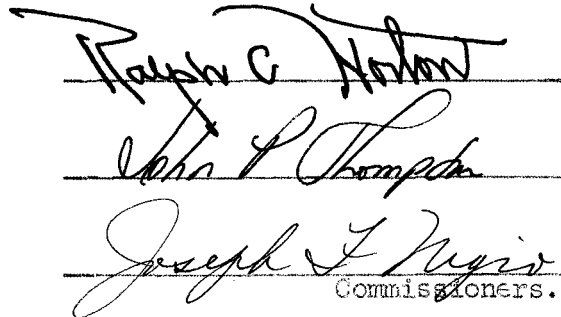 Ralph C Norton
John P Thompson
Joseph F Nigro
Commissioners.